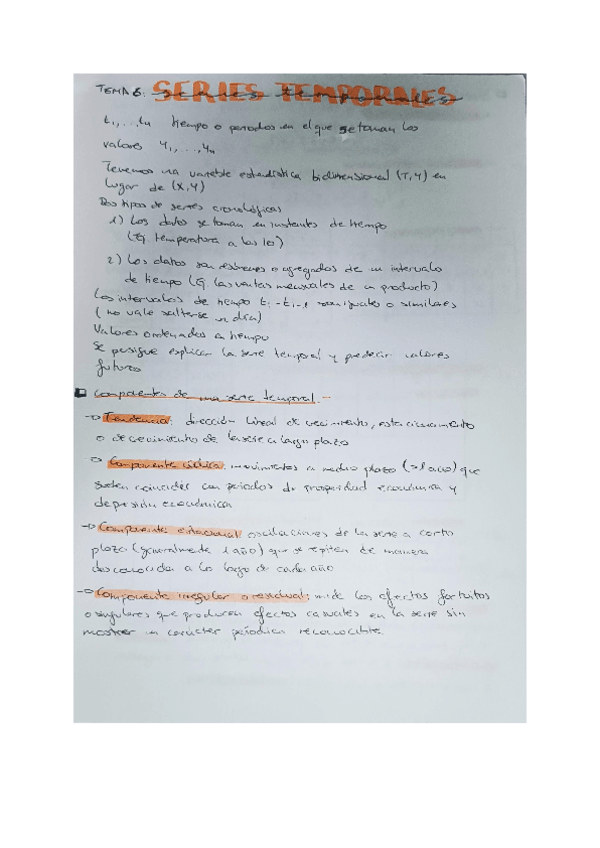 TEMA 6: SERIES TEMPORALES
t1,...,tn tiempo o periodos en el que se toman los
valores Y1,...,Yn
Tenemos una variable estadística bidimensional (T,Y) en
lugar de (X,Y)
Dos tipos de series cronológicas
1) Los datos se toman en instantes de tiempo
(Ej. temperatura a las 10)
2) Los datos son resúmenes o agregados de un intervalo
de tiempo (Ej. las ventas mensuales de un producto)
Los intervalos de tiempo ti - ti-1 son iguales o similares
(no vale saltarse un día)
Valores ordenados a tiempo
Se persigue explicar la serie temporal y predecir valores
futuros
Componentes de una serie temporal.-
-> Tendencia: dirección lineal de crecimiento, estacionamiento
o decrecimiento de la serie a largo plazo
-> Componente cíclica: movimientos a medio plazo (>1 año) que
suelen coincidir con periodos de prosperidad económica y
depresión económica
-> Componente estacional: oscilaciones de la serie a corto
plazo (generalmente 1 año) que se repiten de manera
a lo largo de cada año
-> Componente irregular o residual: mide los efectos fortuitos
o singulares que producen efectos casuales en la serie sin
mostrar un carácter periódico reconocible.